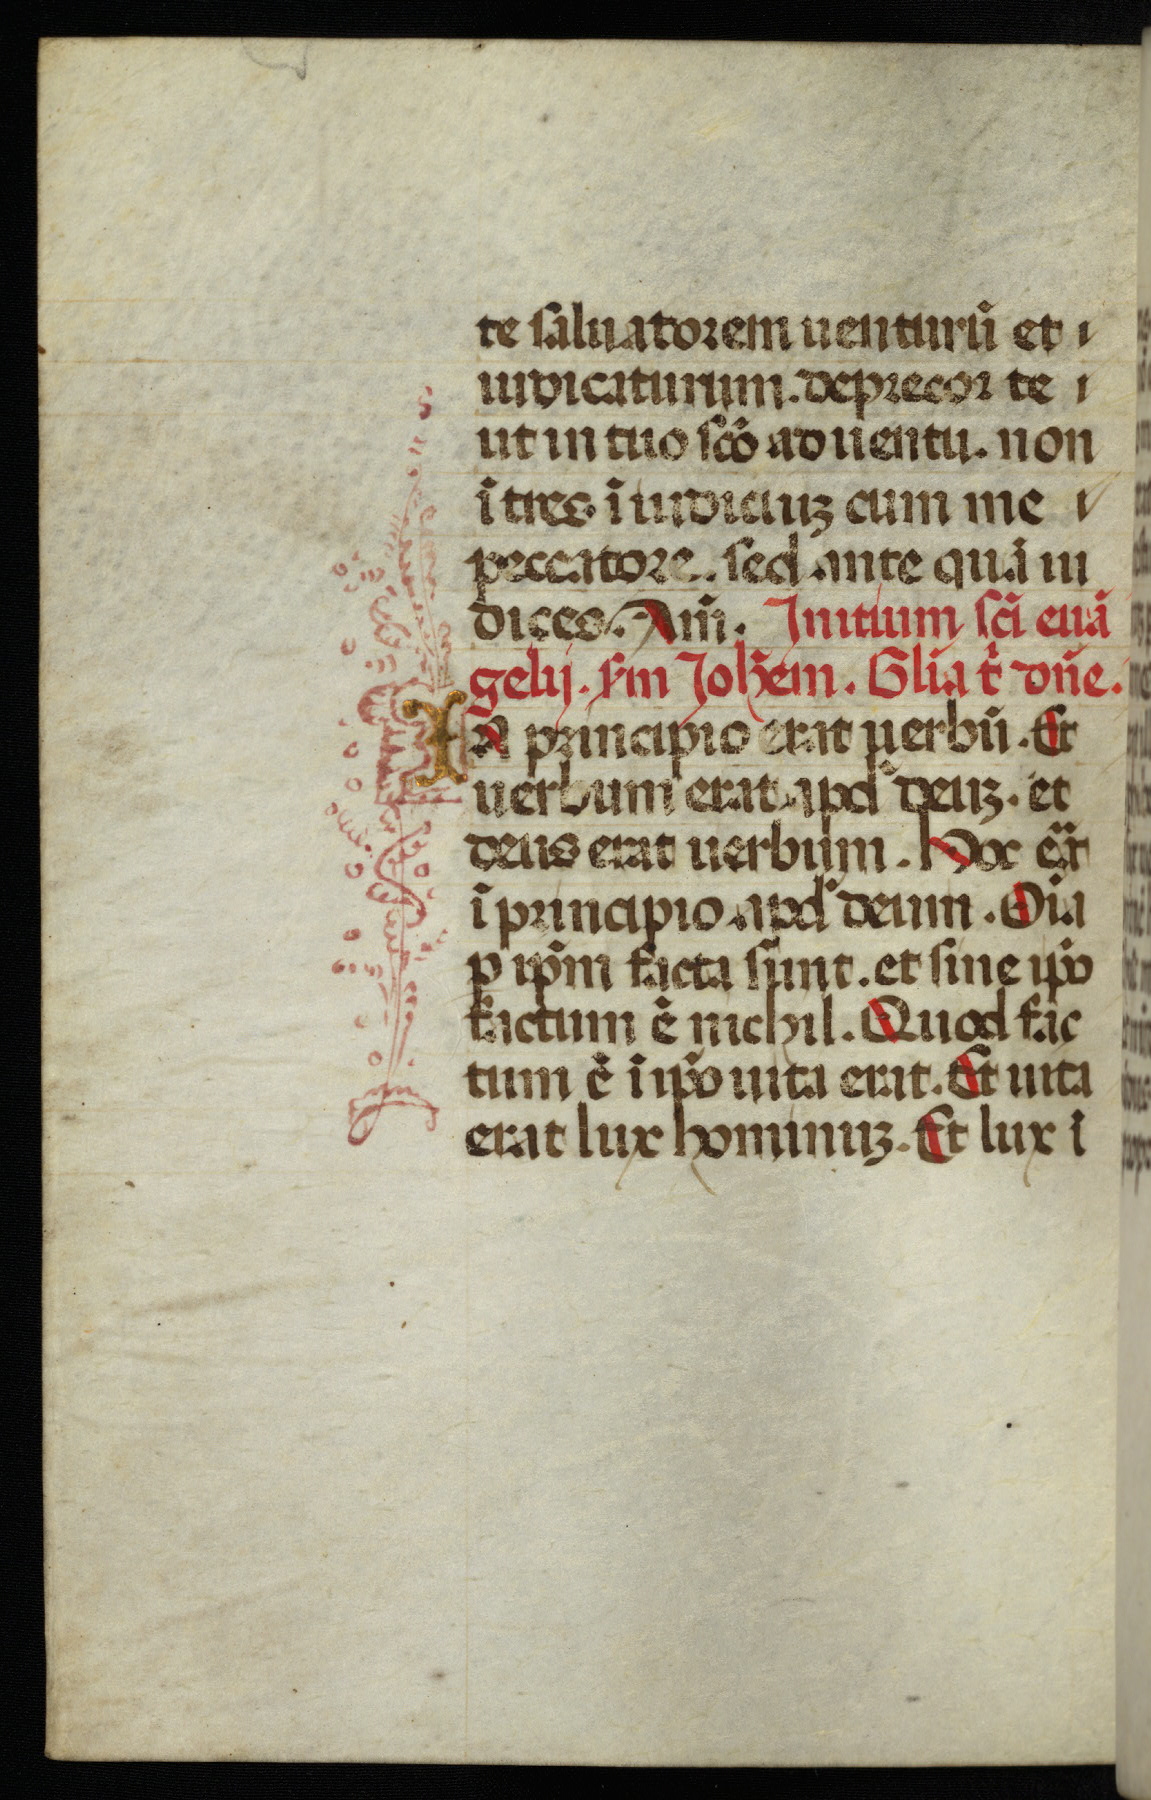 te saluatorem uenturū et
iudicaturum. deprecor te
ut in tuo sc̄o aduentu. non
ītres ī iudiciuꝫ cum me
peccatore. sed ante quā iu
dices. Am̄. Initium sc̄i euā
gelij. s̄m Joh̄em. Gl̄ia t̄ dn̄e.
In principio erat uerbū. Et
uerbum erat apd deuꝫ. et
deus erat uerbum. Hoc erat
ī principio apd deum. Oīa
p ip̄m facta sunt. et sine ip̄o
factum ē nichil. Quod fac
tum ē ī ip̄o uita erat. Et uita
erat lux hominuꝫ. Et lux ī